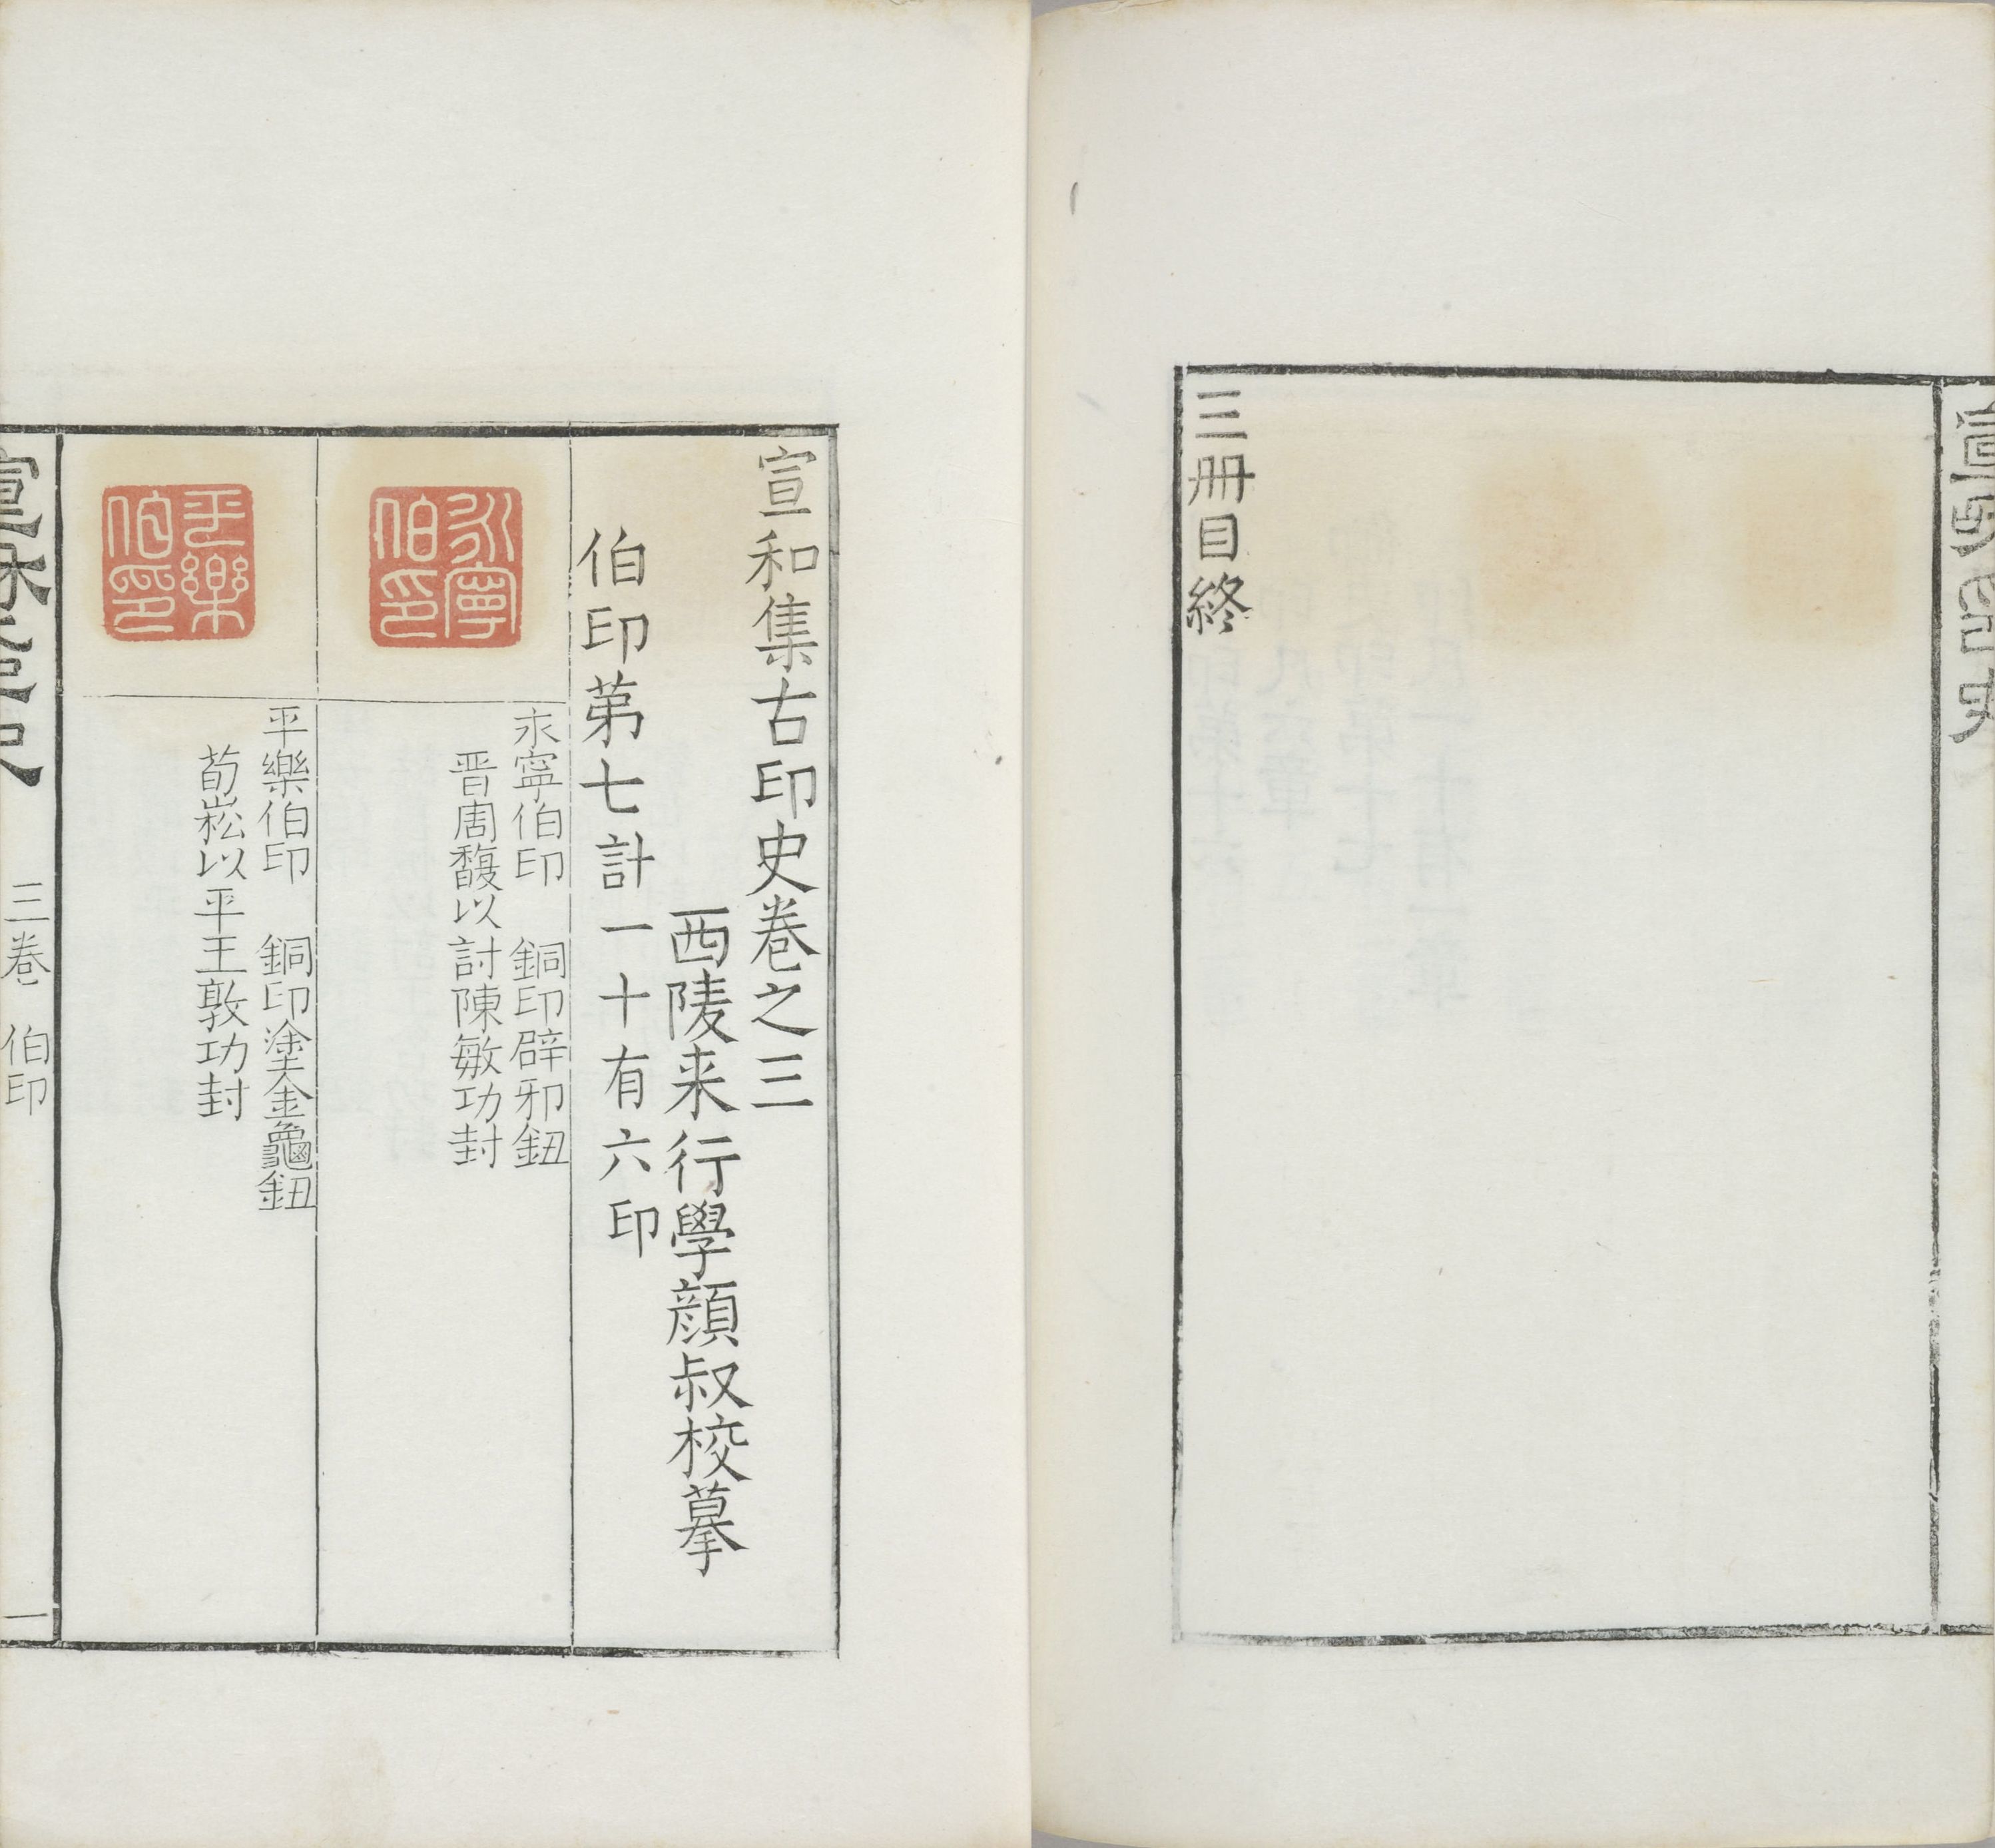 三冊目終
宣和集古印史卷之三
西陵来行學顔叔校摹
伯印苐七計一十有六印
永寧伯印
永寧伯印　銅印辟邪鈕
晋周馥以討陳敏功封
平樂伯印
平樂伯印　銅印塗金龜鈕
荀崧以平王敦功封
三卷　伯印
一